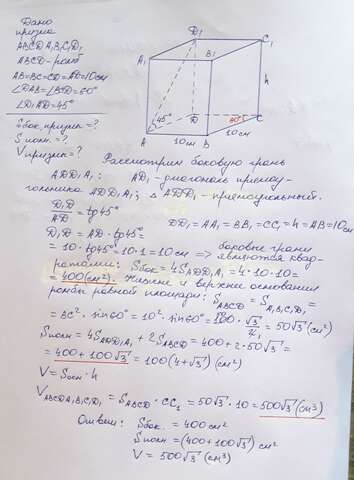 Дано
призма
ABCDA₁B₁C₁D₁
ABCD - ромб
AB=BC=CD=AD=10см
∠DAB=∠BCD=60°
∠D₁AD=45°
Sбок.призмы=?
Sполн.=?
Vпризмы=?
D₁
C₁
A₁
B₁
h
45°
D
60°
C
A
10см
B
10см
Рассмотрим боковую грань
ADD₁A₁: AD₁ - диагональ прямоу-
гольника ADD₁A₁; △ADD₁ - прямоугольный.
D₁D/AD = tg45°
DD₁=AA₁=BB₁=CC₁=h=AB=10см
D₁D=AD·tg45°=
=10·tg45°=10·1=10см => боковые грани
являются квад-
ратами: Sбок=4SADD₁A₁=4·10·10=
=400(см²). Нижнее и верхнее основания
ромбы равной площади: SABCD=SA₁B₁C₁D₁=
=BC²·sin60°=10²·sin60°=100·√3/2=50√3(см²)
Sполн=4SADD₁A₁+2SABCD=400+2·50√3=
=400+100√3=100(4+√3)(см²)
V=Sосн·h
VABCDA₁B₁C₁D₁=SABCD·CC₁=50√3·10=500√3(см³)
Ответ: Sбок.=400см²
Sполн=(400+100√3)см²
V=500√3(см³)